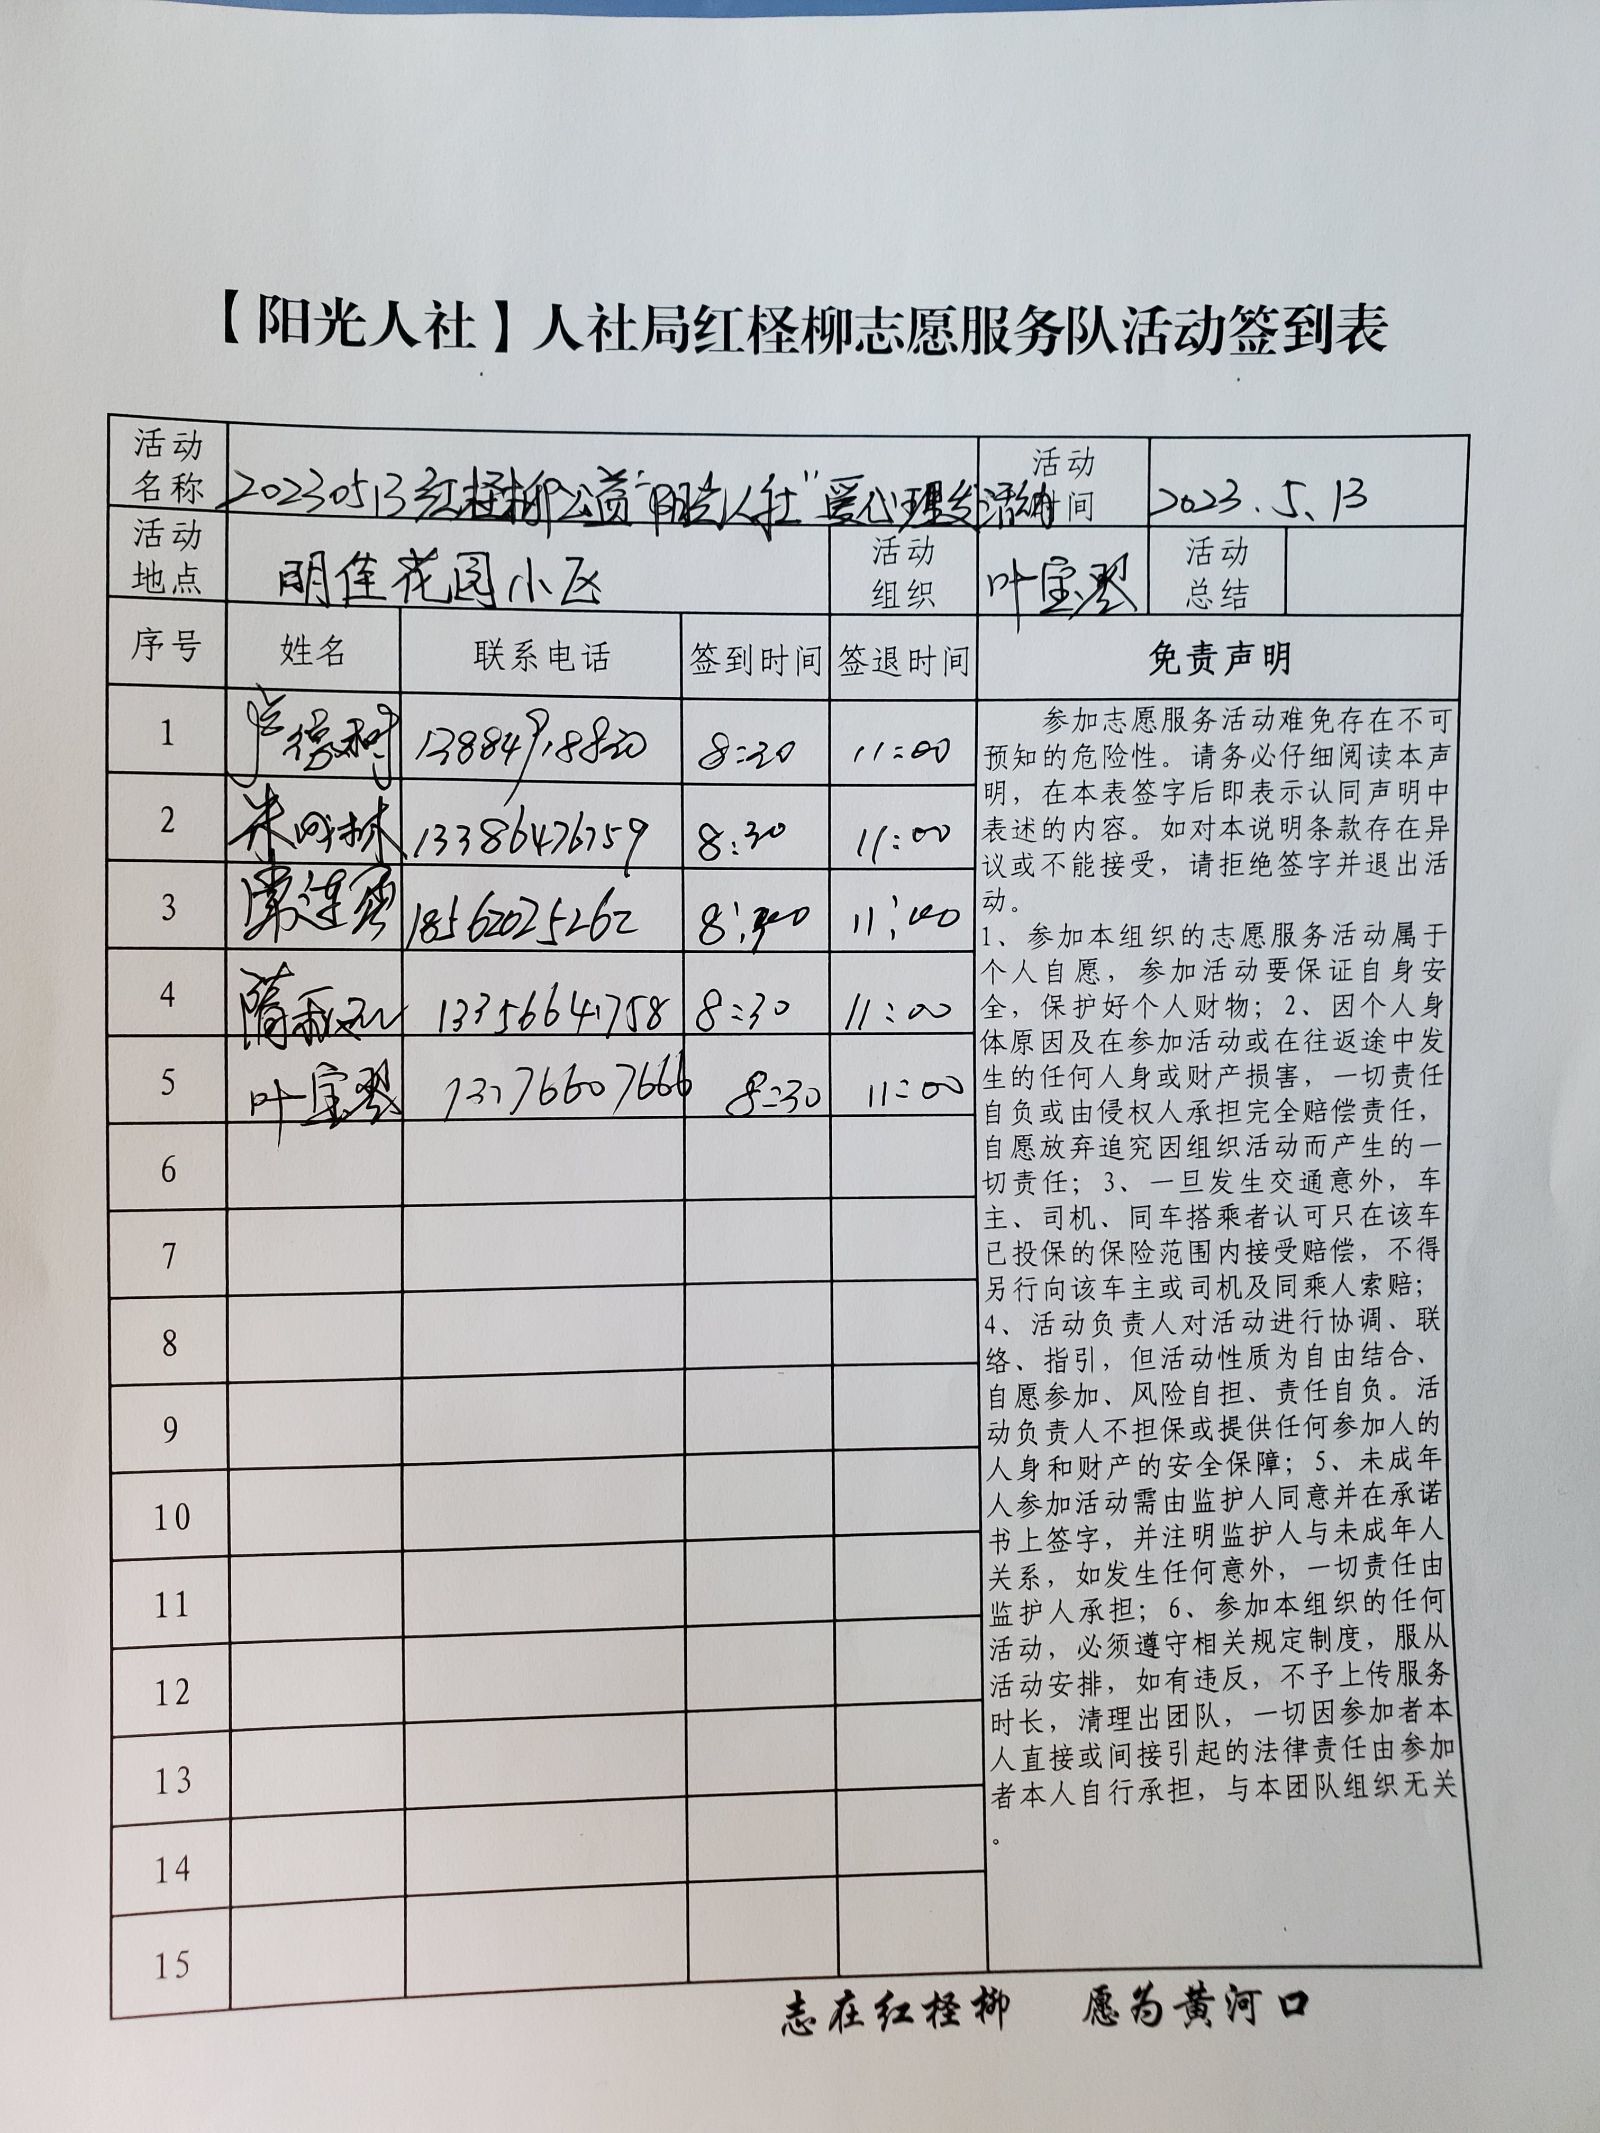 【阳光人社】人社局红柽柳志愿服务队活动签到表
活动名称 20230513红柽柳公益"阳光人社"爱心理发活动 活动时间 2023.5.13
活动地点 明佳花园小区 活动组织 叶宝琴 活动总结
序号 姓名 联系电话 签到时间 签退时间 免责声明
1 13884918820 8:30 11:00
2 13386476759 8:30 11:00
3 18562025262 11:00
4 13356641758 8:30 11:00
5 叶宝琴 13176607666 8:30 11:00
6
7
8
9
10
11
12
13
14
15
参加志愿服务活动难免存在不可
预知的危险性。请务必仔细阅读本声
明，在本表签字后即表示认同声明中
表述的内容。如对本说明条款存在异
议或不能接受，请拒绝签字并退出活
动。
1、参加本组织的志愿服务活动属于
个人自愿，参加活动要保证自身安
全，保护好个人财物；2、因个人身
体原因及在参加活动或在往返途中发
生的任何人身或财产损害，一切责任
自负或由侵权人承担完全赔偿责任，
自愿放弃追究因组织活动而产生的一
切责任；3、一旦发生交通意外，车
主、司机、同车搭乘者认可只在该车
已投保的保险范围内接受赔偿，不得
另行向该车主或司机及同乘人索赔；
4、活动负责人对活动进行协调、联
络、指引，但活动性质为自由结合、
自愿参加、风险自担、责任自负。活
动负责人不担保或提供任何参加人的
人身和财产的安全保障；5、未成年
人参加活动需由监护人同意并在承诺
书上签字，并注明监护人与未成年人
关系，如发生任何意外，一切责任由
监护人承担；6、参加本组织的任何
活动，必须遵守相关规定制度，服从
活动安排，如有违反，不予上传服务
时长，清理出团队，一切因参加者本
人直接或间接引起的法律责任由参加
者本人自行承担，与本团队组织无关
。
志在红柽柳 愿为黄河口